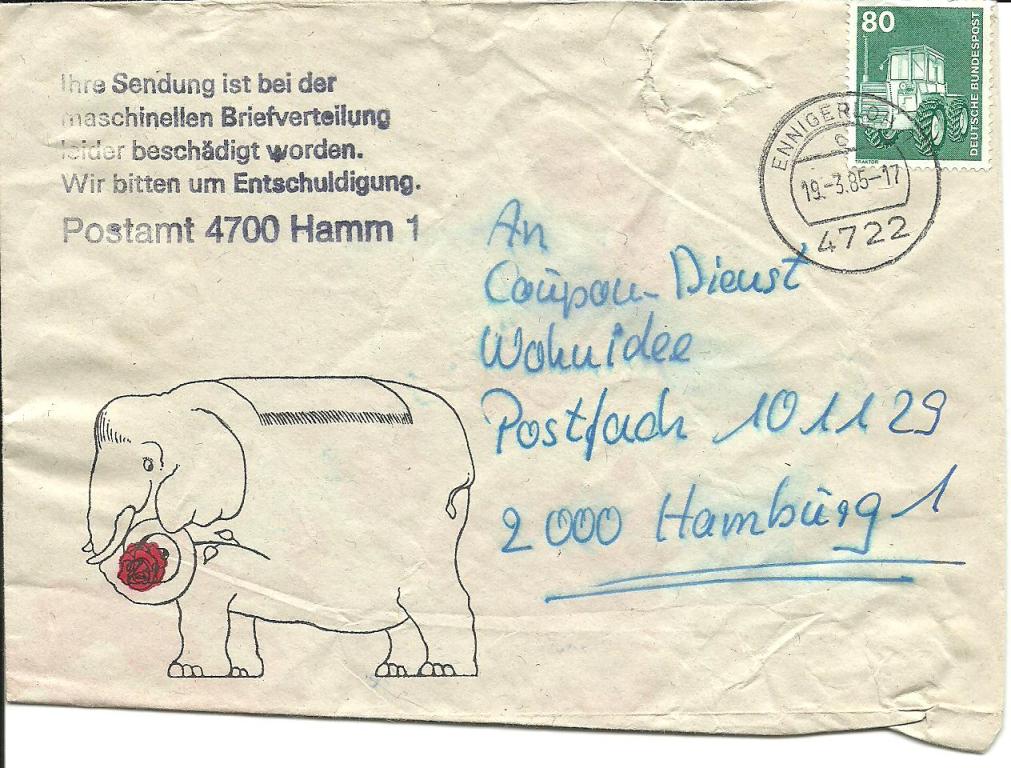 Ihre Sendung ist bei der
maschinellen Briefverteilung
leider beschädigt worden.
Wir bitten um Entschuldigung.
Postamt 4700 Hamm 1
80
DEUTSCHE BUNDESPOST
TRAKTOR
ENNIGERLOH
c
19.-3.85-17
4722
An
Coupon-Dienst
Wohnidee
Postfach 101129
2000 Hamburg 1